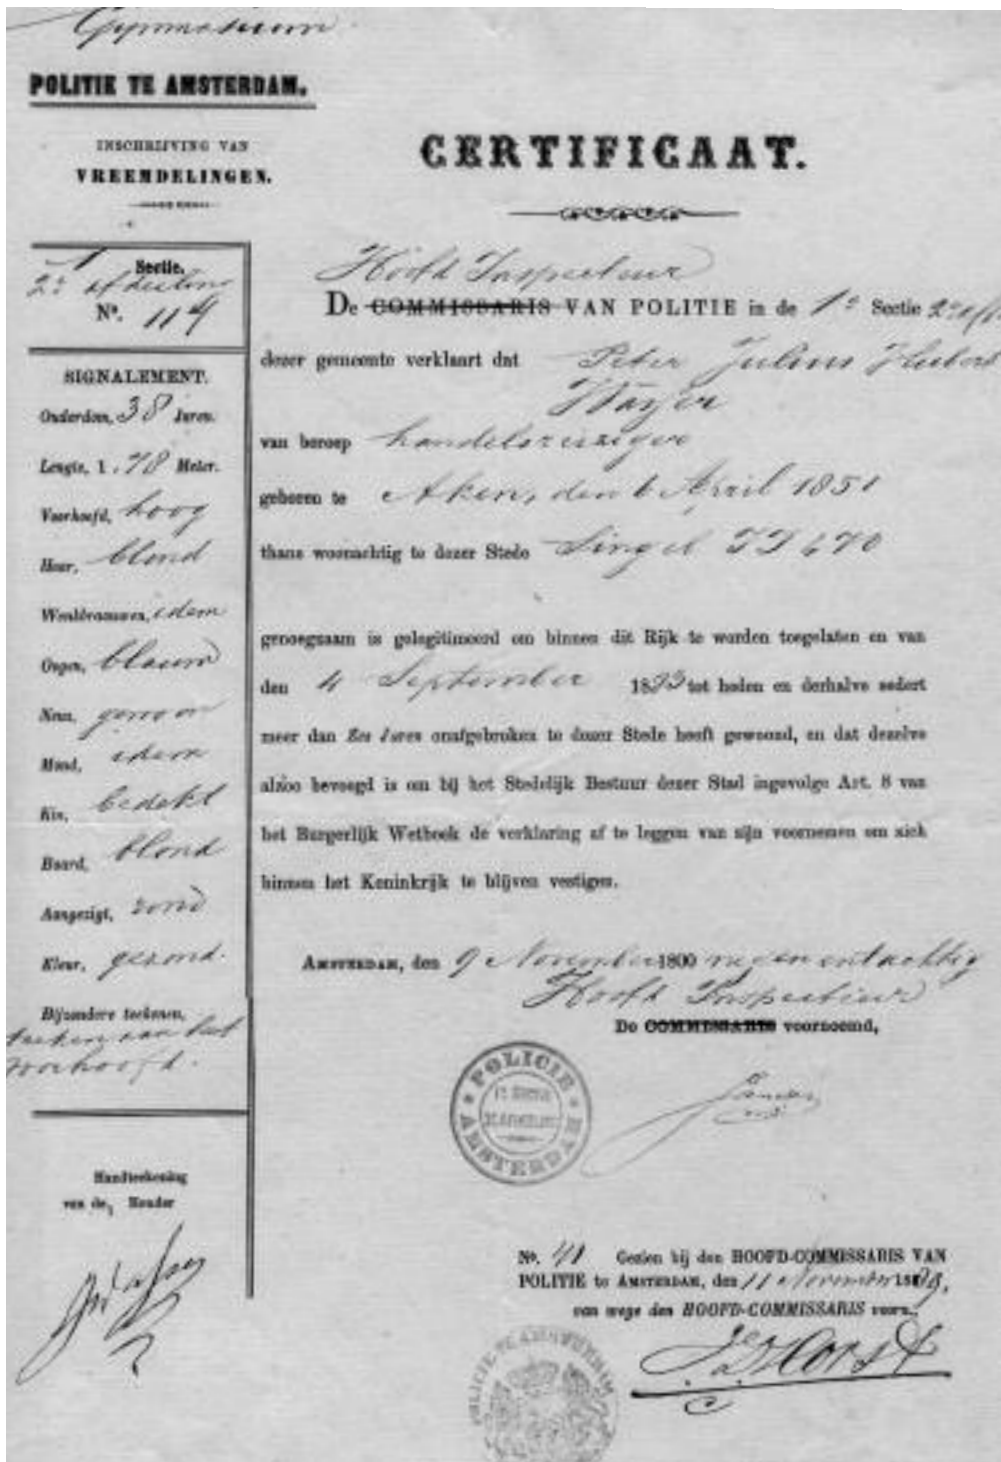 Gymnasium
POLITIE TE AMSTERDAM.
INSCHRIJVING VAN
VREEMDELINGEN.
CERTIFICAAT.
1 Sectie.
2e afdeeling
No. 114
SIGNALEMENT.
Ouderdom, 38 Jaren.
Lengte, 1.78 Meter.
Voorhoofd, hoog
Haar, blond
Wenkbraauwen, idem
Oogen, blauw
Neus, gewoon
Mond, idem
Kin, bedekt
Baard, blond
Aangezigt, rond
Kleur, gezond.
Bijzondere teekenen,
aan het
voorhoofd.
Handteekening
van de Houder
Hoofd Inspecteur
De COMMISSARIS VAN POLITIE in de 1e Sectie 2e
dezer gemeente verklaart dat Peter Julius Hubert
van beroep handelsreiziger
geboren te Aken, den 6 April 1851
thans woonachtig te dezer Stede Singel 670
genoegzaam is gelegitimeerd om binnen dit Rijk te worden toegelaten en van
den 4 September 18 tot heden en derhalve sedert
meer dan Zes Jaren onafgebroken te dezer Stede heeft gewoond, en dat dezelve
alzoo bevoegd is om bij het Stedelijk Bestuur dezer Stad ingevolge Art. 8 van
het Burgerlijk Wetboek de verklaring af te leggen van zijn voornemen om zich
binnen het Koninkrijk te blijven vestigen.
AMSTERDAM, den 9 November 1800 negen en tachtig
Hoofd Inspecteur
De COMMISSARIS voornoemd,
POLICIE AMSTERDAM
No. 41 Gezien bij den HOOFD-COMMISSARIS VAN
POLITIE te AMSTERDAM, den 11 November 1889,
van wege den HOOFD-COMMISSARIS voorn.,
POLITIE TE AMSTERDAM